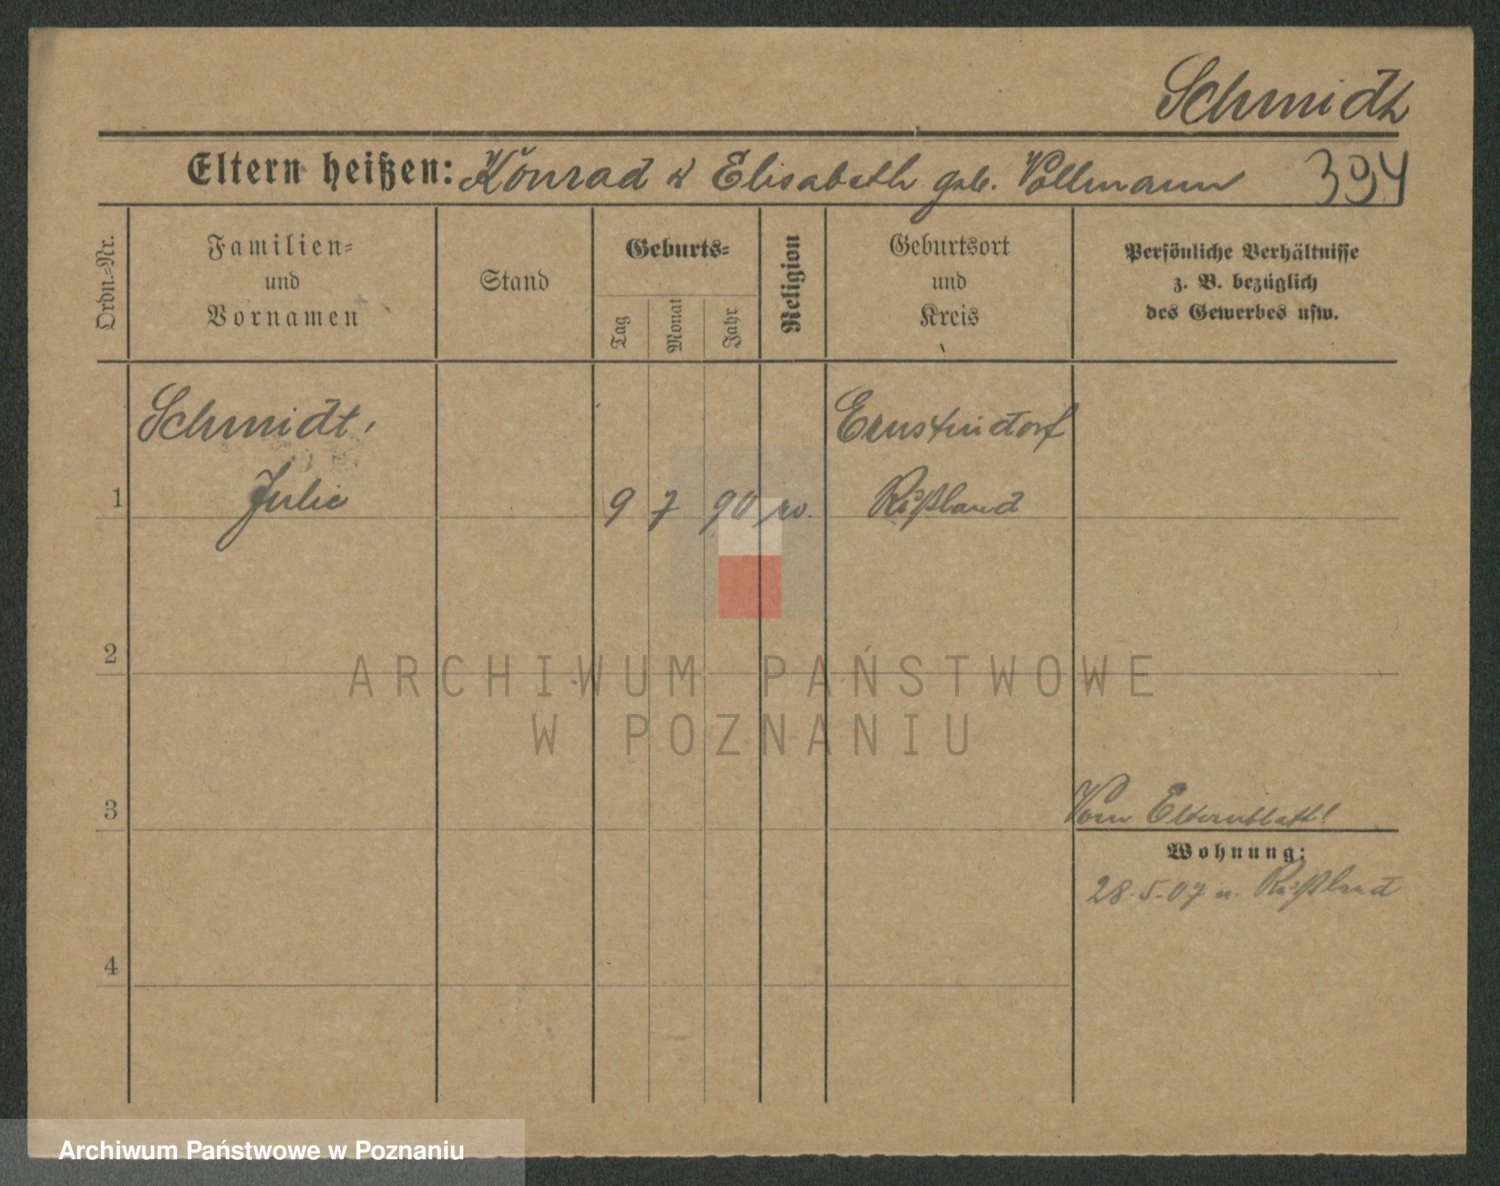 Schmidt
Eltern heißen: Konrad & Elisabeth geb. Vollmann 394
Ordn.-Nr.
Familien-
und
Vornamen
Stand
Geburts-
Tag
Monat
Jahr
Religion
Geburtsort
und
Kreis
Persönliche Verhältnisse
z. B. bezüglich
des Gewerbes usw.
Schmidt,
Ernstindorf
1 Julie 9 7 90 ev. Rußland
2
ARCHIWUM PAŃSTWOWE
W POZNANIU
3
Vom Elternblatt!
Wohnung:
28.5.07 n. Rußland
4
Archiwum Państwowe w Poznaniu